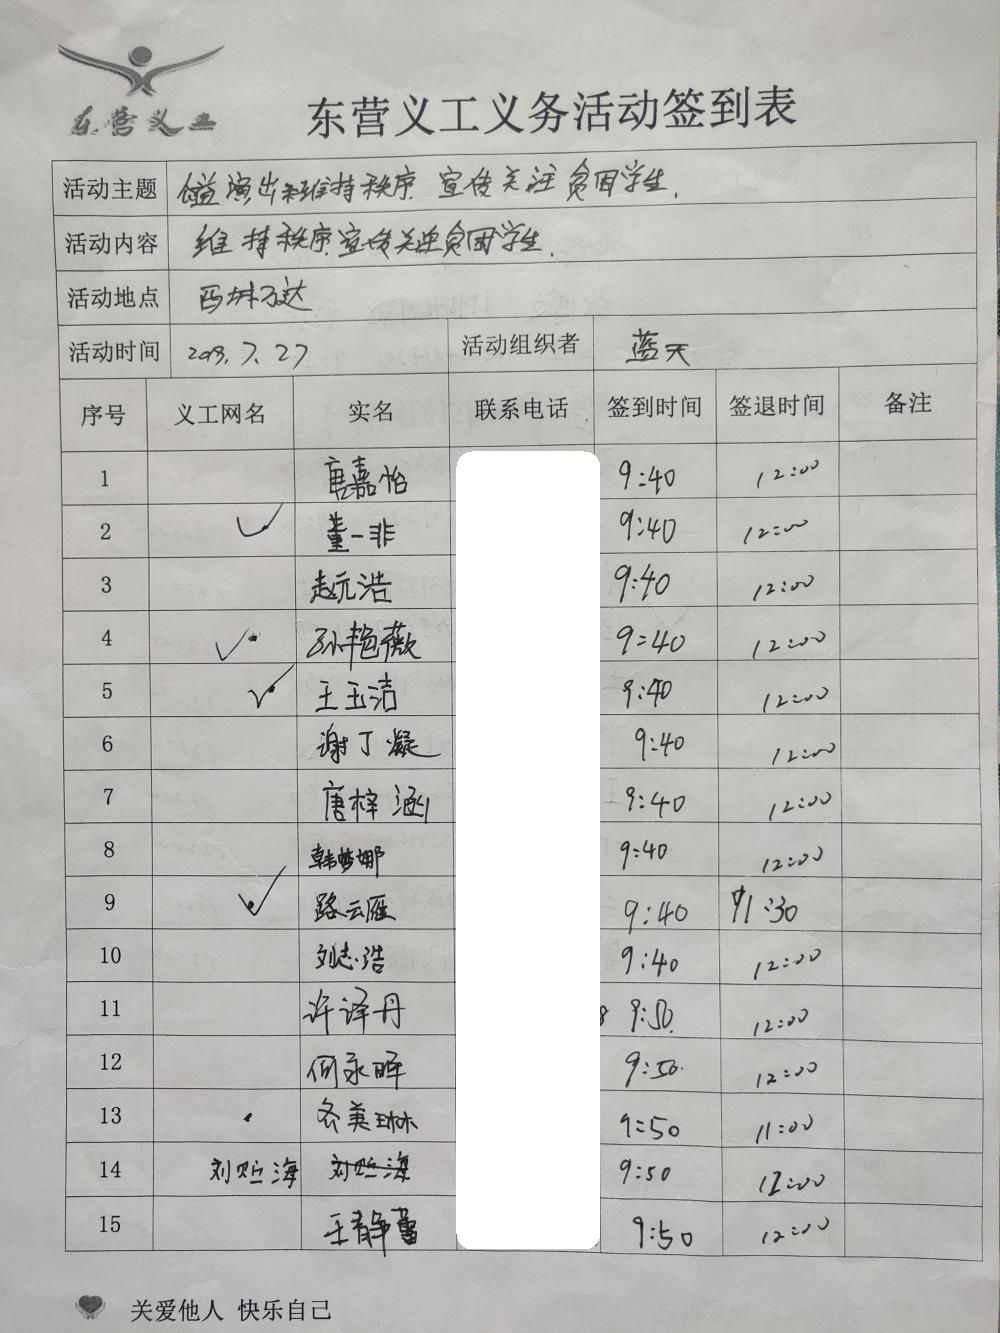 东营义工
东营义工义务活动签到表
活动主题 演出和维持秩序 宣传关注贫困学生.
活动内容 维持秩序宣传关注贫困学生.
活动地点 西城万达
活动时间 2013.7.27 活动组织者 蓝天
序号 义工网名 实名 联系电话 签到时间 签退时间 备注
1 唐嘉怡 9:40 12:00
2 董一非 9:40 12:00
3 赵元浩 9:40 12:00
4 孙艳薇 9:40 12:00
5 王玉洁 9:40 12:00
6 谢丁凝 9:40 12:00
7 唐梓涵 9:40 12:00
8 韩梦娜 9:40 12:00
9 路云雁 9:40 11:30
10 刘志浩 9:40 12:00
11 许译丹 9:50 12:00
12 何永晖 9:50 12:00
13 美琳 9:50 11:00
14 刘贮海 刘贮海 9:50 12:00
15 王静蕾 9:50 12:00
关爱他人 快乐自己